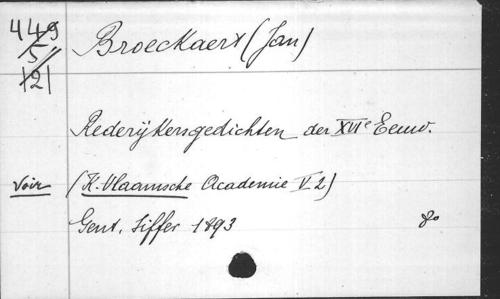 449
5
121
Broeckaert (Jan)
Rederijkersgedichten der XVIe Eeuw.
Voir (K. Vlaamsche Academie V. 2)
Gent, Siffer 1893 8o